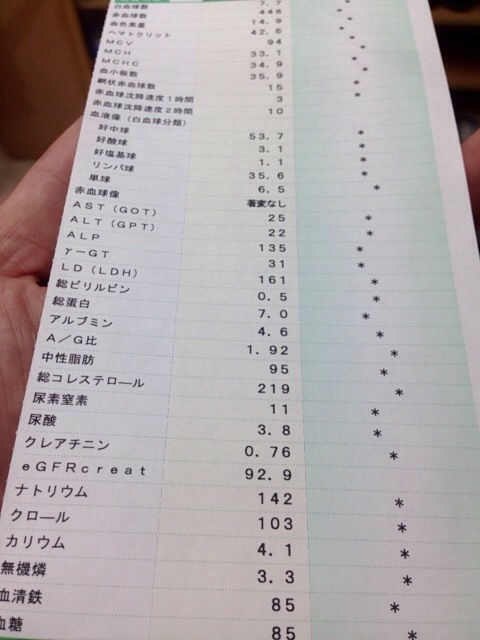 白血球数 7.7 *
赤血球数 448 *
血色素量 14.9 *
ヘマトクリット 42.6 *
MCV 94 *
MCH 33.1 *
MCHC 34.9 *
血小板数 35.9 *
網状赤血球数 15 *
赤血球沈降速度1時間 3
赤血球沈降速度2時間 10
血液像(白血球分類)
好中球 53.7 *
好酸球 3.1 *
好塩基球 1.1 *
リンパ球 35.6 *
単球 6.5 *
赤血球像 著変なし
AST(GOT) 25 *
ALT(GPT) 22 *
ALP 135 *
γ-GT 31 *
LD(LDH) 161 *
総ビリルビン 0.5 *
総蛋白 7.0 *
アルブミン 4.6 *
A/G比 1.92 *
中性脂肪 95 *
総コレステロール 219 *
尿素窒素 11 *
尿酸 3.8 *
クレアチニン 0.76 *
eGFRcreat 92.9
ナトリウム 142 *
クロール 103 *
カリウム 4.1 *
無機燐 3.3 *
血清鉄 85 *
血糖 85 *